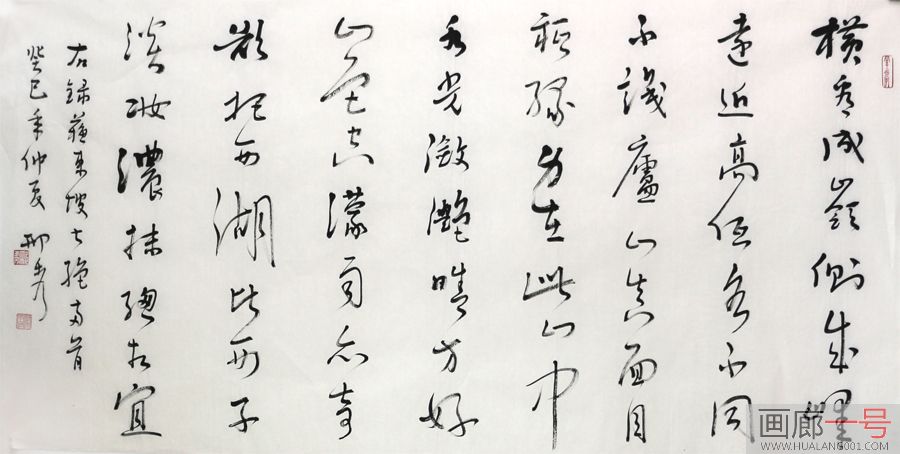 橫看成嶺側成峰
遠近高低各不同
不識廬山真面目
祇緣身在此山中
水光瀲灧晴方好
山色空濛雨亦奇
欲把西湖比西子
淡妝濃抹總相宜
右錄蘇東坡七絕兩首
癸巳年仲夏
画廊一号
WWW.HUALANG001.COM